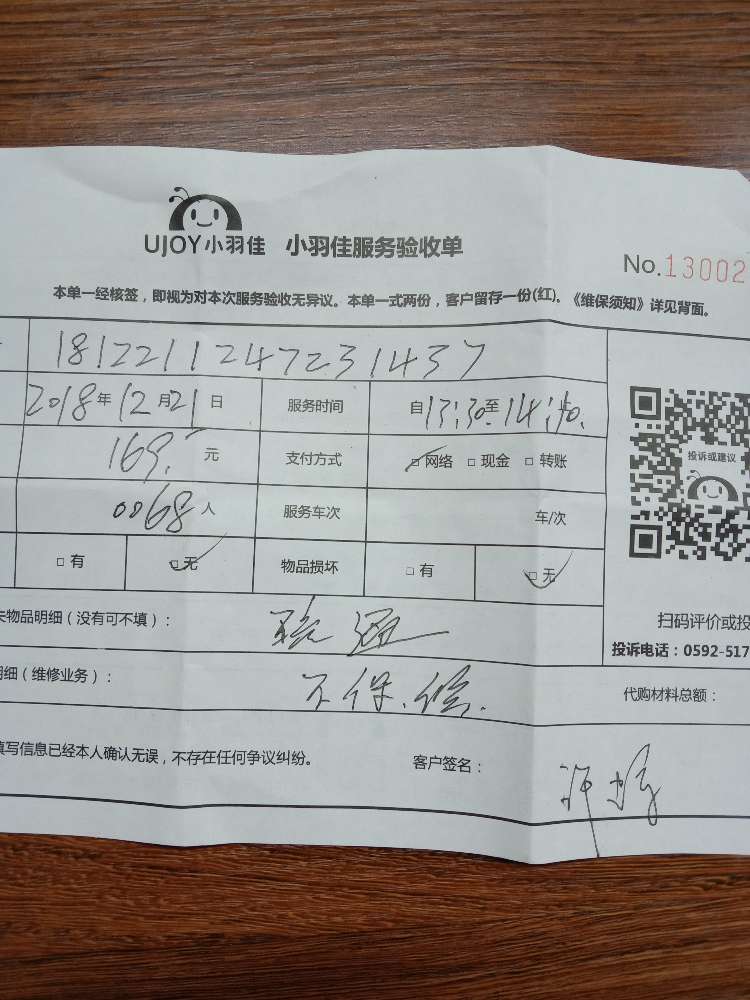 UJOY小羽佳 小羽佳服务验收单
No.13002
本单一经核签，即视为对本次服务验收无异议。本单一式两份，客户留存一份(红)。《维保须知》详见背面。
181221124723 1437
2018年12月21日 服务时间 自13:30至14:10.
169.- 元 支付方式 □网络 □现金 □转账
0068人 服务车次 车/次
□有 □无 物品损坏 □有 □无
投诉或建议
物品明细（没有可不填）： 疏通
扫码评价或投
投诉电话：0592-517
细（维修业务）： 不保修.
代购材料总额：
填写信息已经本人确认无误，不存在任何争议纠纷。 客户签名：